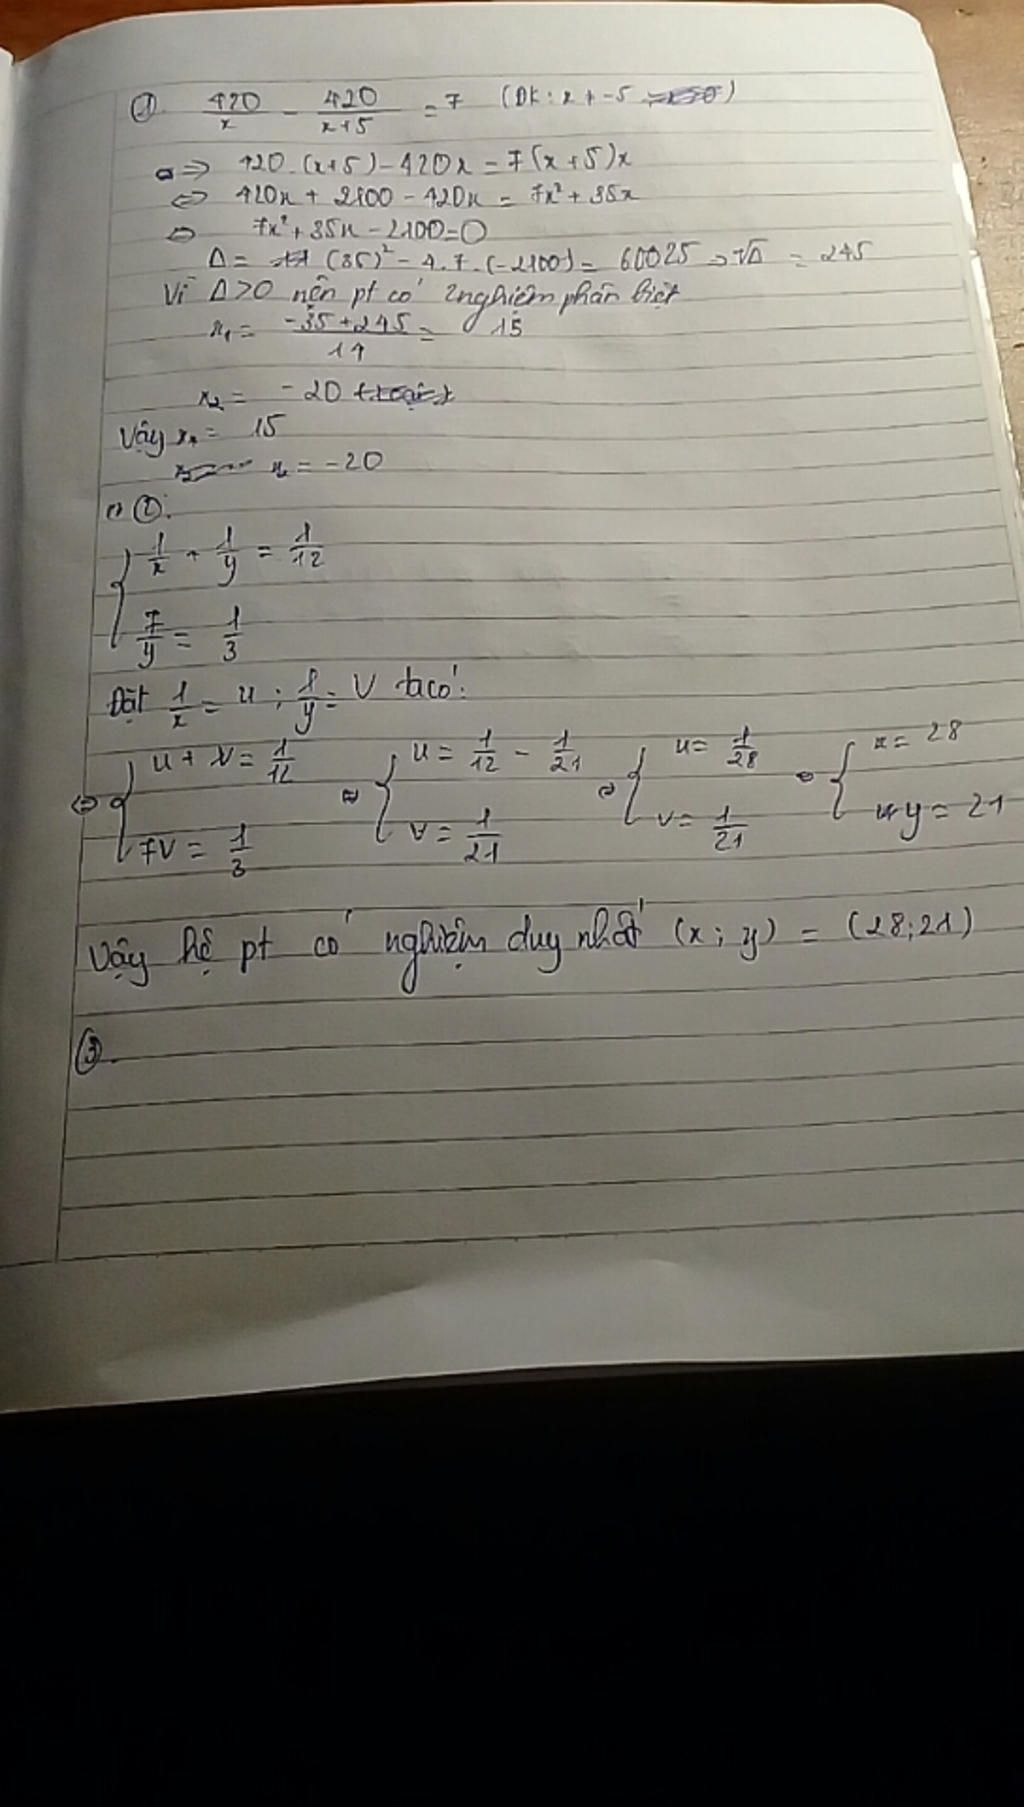 ① 420/x - 420/(x+5) = 7 (ĐK: x ≠ -5)
=> 420.(x+5) - 420x = 7(x+5)x
<=> 420x + 2100 - 420x = 7x² + 35x
<=> 7x² + 35x - 2100 = 0
Δ = (35)² - 4.7.(-2100) = 60025 => √Δ = 245
Vì Δ > 0 nên pt có 2 nghiệm phân biệt
x₁ = (-35 + 245)/14 = 15
x₂ = -20 (loại)
Vậy x₁ = 15
x₂ = -20
②.
{ 1/x + 1/y = 1/12
7/y = 1/3
Đặt 1/x = u ; 1/y = V ta có:
<=> { u + V = 1/12 <=> { u = 1/12 - 1/21 <=> { u = 1/28 <=> { x = 28
7V = 1/3 V = 1/21 V = 1/21 y = 21
Vậy hệ pt có nghiệm duy nhất (x; y) = (28; 21)
③.